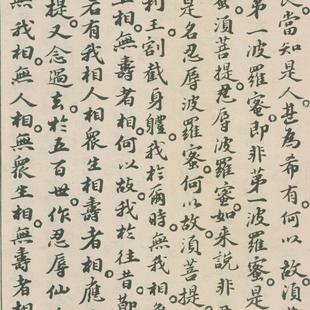 畏。當知是人甚為希有。何以故。須
第一波羅蜜。即非第一波羅蜜。是
須菩提。忍辱波羅蜜。如来說非忍
是名忍辱波羅蜜。何以故。須菩提
利王割截身體。我於爾時。無我相
相。無壽者相。何以故。我於往昔節
若有我相人相眾生相壽者相。應
提。又念過去於五百世。作忍辱仙
無我相。無人相。無眾生相。無壽者相